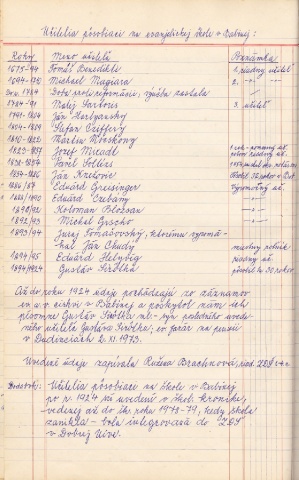 Učitelia pôsobiaci na evanjelickej škole v Babinej:
Roky Meno učiteľa Poznámka
1675-94 Tomáš Benedikti 1. riadny učiteľ
1694-1721 Michael Magiara 2. -"-
Do r. 1784 Doba protireformácie, výučba zastala
1784-91 Matej Sartoris 3. učiteľ
1791-1804 Ján Serbyansky
1804-1809 Štefan Cziffery
1810-1822 Martin Mosskony
1822-1827 Jozef Micadl
1828-1854 Pavel Sollius
1854-1886 Ján Kretovic
1886/87 Eduárd Greisinger Výpomocný uč.
1888/1890 Eduárd Cubány -"-
1890/92 Koloman Bolozsan -"-
1892/93 Michel Gischo -"-
1893/94 Juraj Tomašovský, ktorému vypomá-
hal Ján Chudý miestny rolník
1894/95 Eduárd Helybig riadny uč.
1894/1924 Gustáv Sirótka pôsobil tu 30 rokov
Až do roku 1924 údaje pochádzajú zo záznamov
ev. a. v. cirkvi v Babinej a poskytol nám ich
písomne Gustáv Sirótka ml. - syn posledného uvede-
ného učiteľa Gustáva Sirótku, ev. farár na penzii
v Dudinciach 2. XI. 1973.
Uvedené údaje zapísala Ružena Brachnová, riad. ZDŠ
Dodatok: Učitelia pôsobiaci na škole v Babinej
po r. 1924 sú uvedení v škol. kronike,
vedenej až do šk. roku 1978-79, kedy škola
zanikla - bola integrovaná do ZDŠ
v Dobrej Nive.